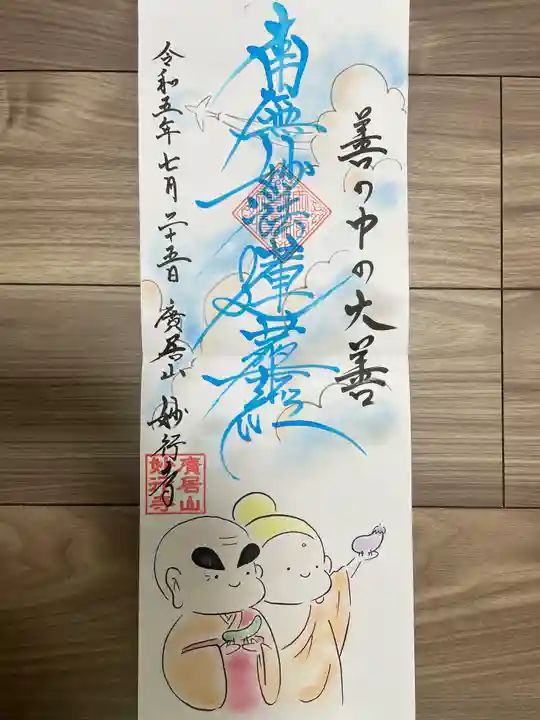 善の中の大善
南無妙法蓮華経
令和五年七月二十五日 廣居山 妙行寺
廣居山
妙行寺